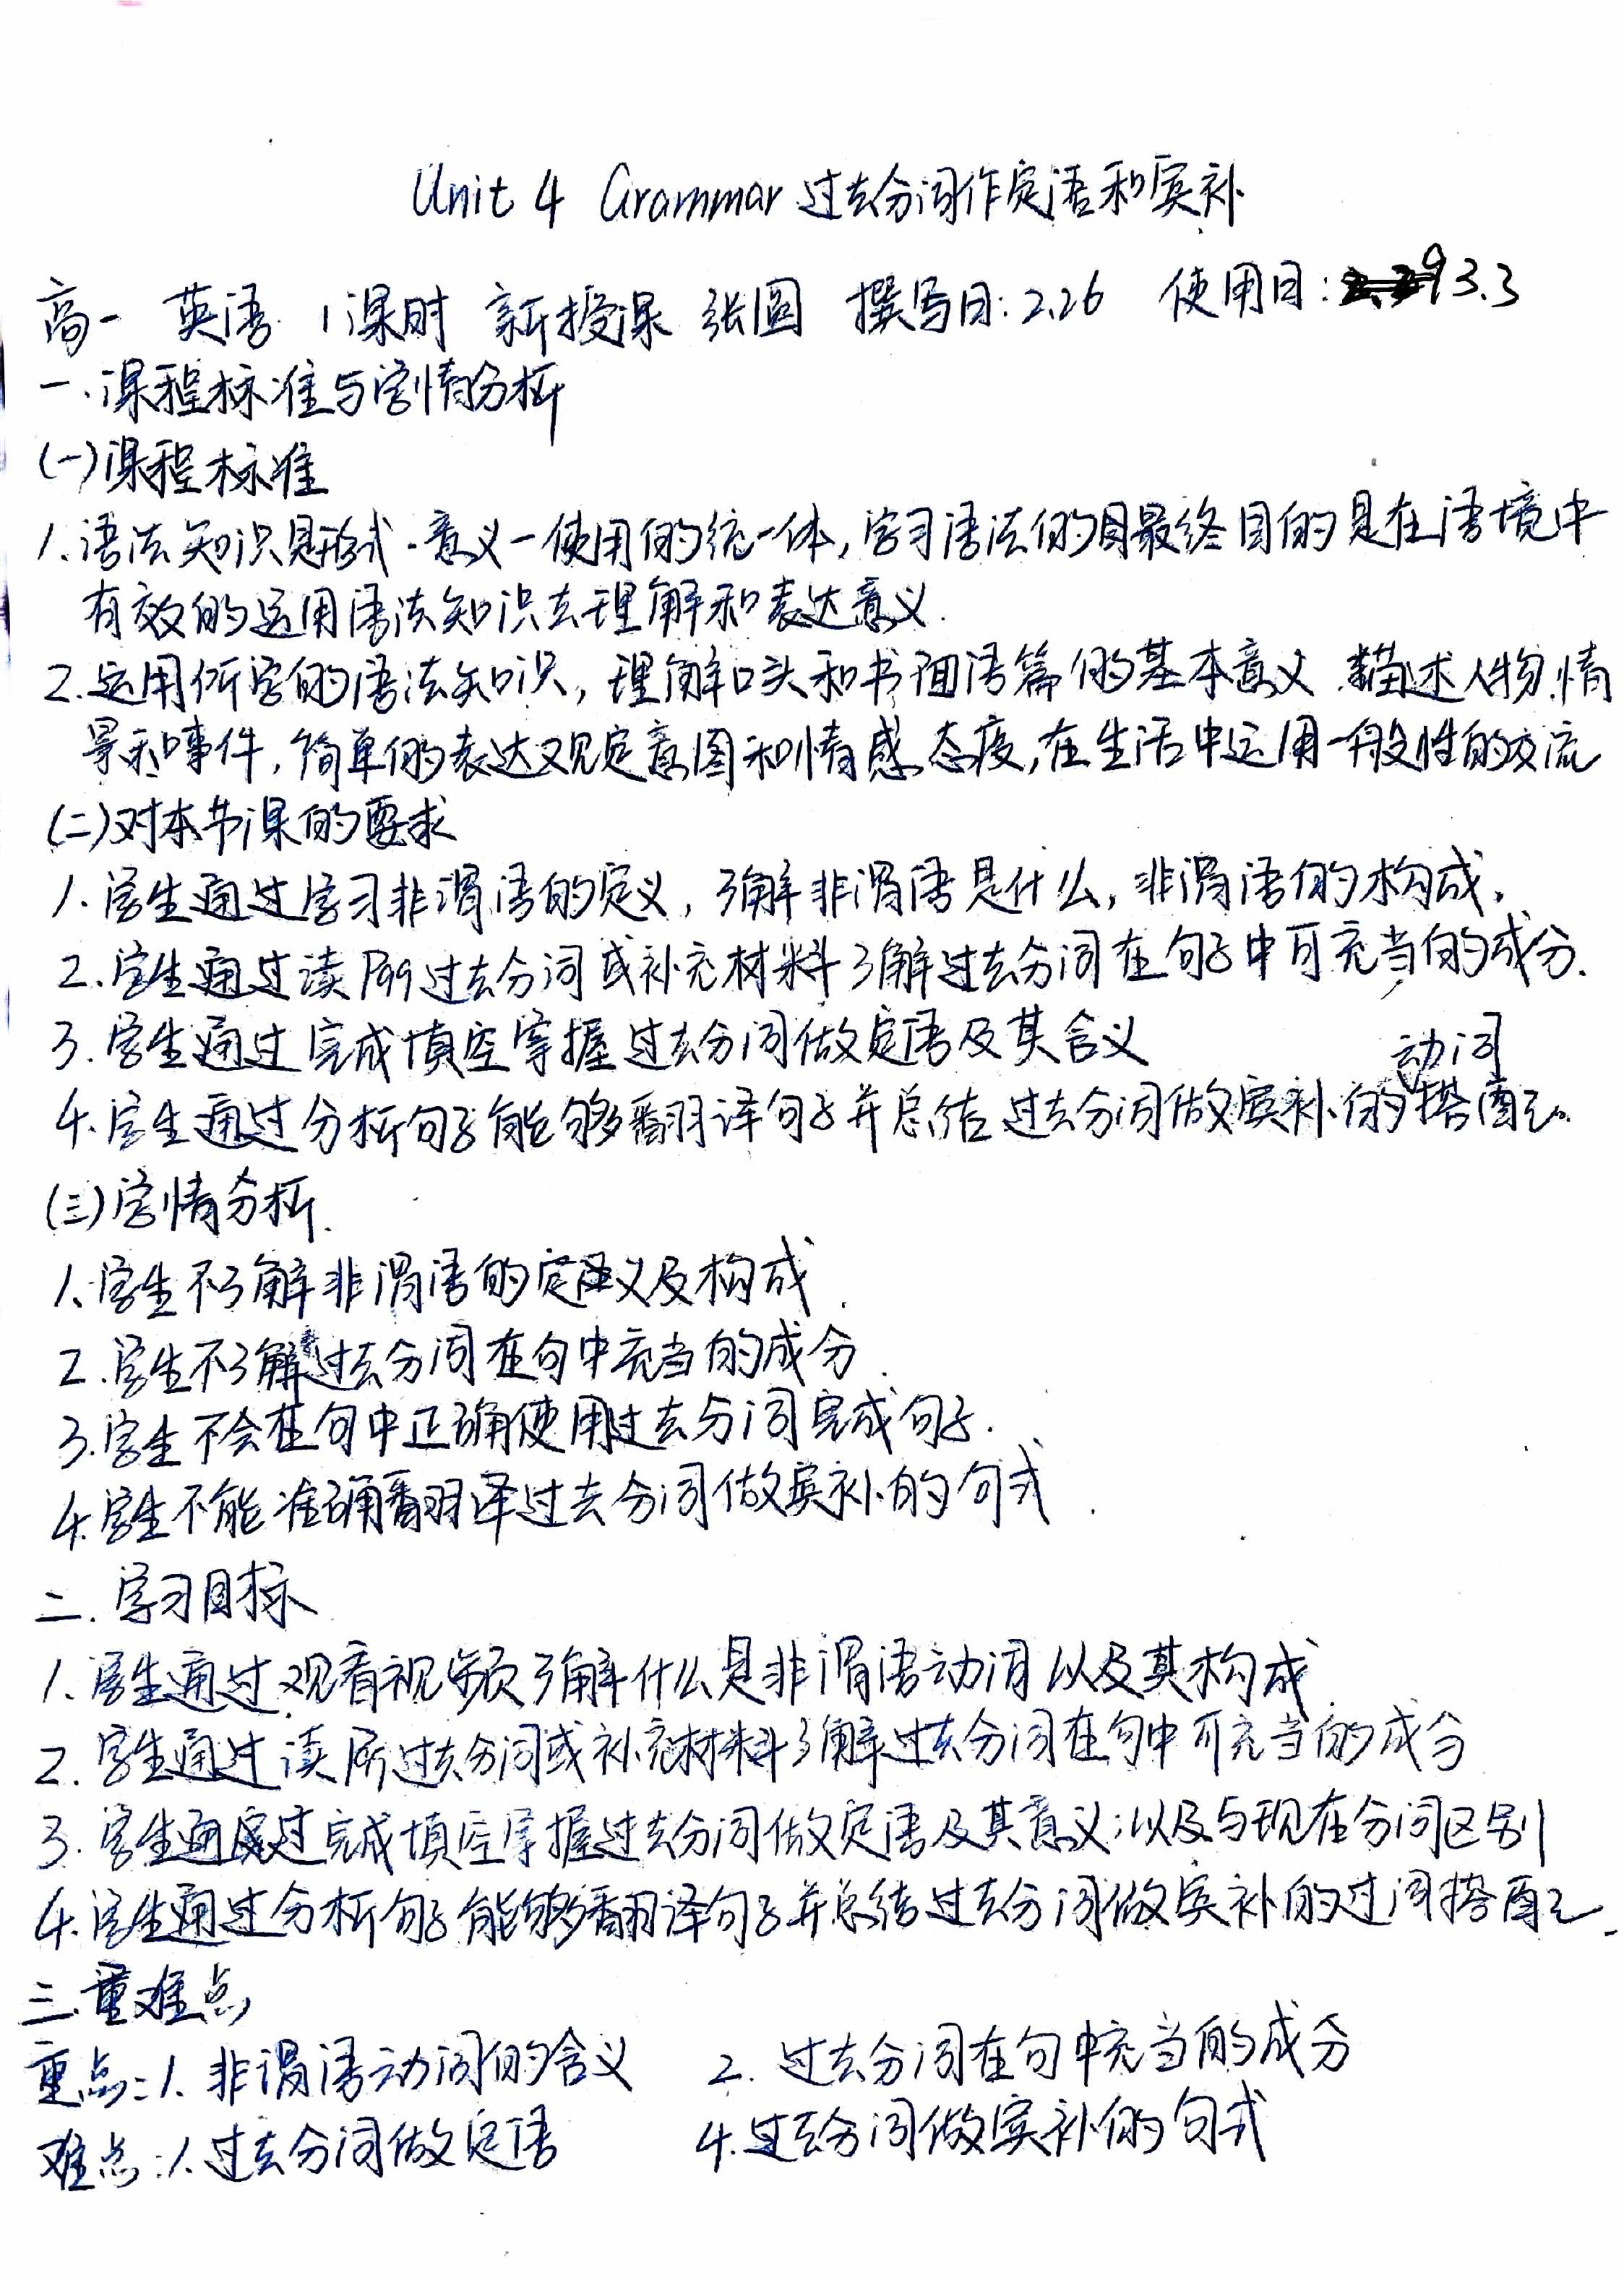 Unit 4 Grammar 过去分词作定语和宾补
高一 英语 1课时 新授课 张圆 撰写日:2.26 使用日:3.3
一.课程标准与学情分析
(一)课程标准
1.语法知识是形式-意义-使用的统一体,学习语法的最终目的是在语境中
有效的运用语法知识去理解和表达意义.
2.运用所学的语法知识,理解口头和书面语篇的基本意义.描述人物.情
景和事件,简单的表达观定意图和情感态度,在生活中运用一般性的交流
(二)对本节课的要求
1.学生通过学习非谓语的定义,了解非谓语是什么,非谓语的构成.
2.学生通过读所过去分词或补充材料了解过去分词在句子中可充当的成分.
3.学生通过完成填空掌握过去分词做定语及其含义
4.学生通过分析句子能够翻译句子并总结过去分词做宾补的动词搭配.
(三)学情分析.
1.学生不了解非谓语的定义及构成.
2.学生不了解过去分词在句中充当的成分.
3.学生不会在句中正确使用过去分词完成句子.
4.学生不能准确翻译过去分词做宾补的句式.
二.学习目标
1.学生通过观看视频了解什么是非谓语动词以及其构成.
2.学生通过读所过去分词或补充材料了解过去分词在句中可充当的成分
3.学生通过完成填空掌握过去分词做定语及其意义;以及与现在分词区别
4.学生通过分析句子能够翻译句子并总结过去分词做宾补的过词搭配.
三.重难点
重点:1.非谓语动词的含义 2.过去分词在句中充当的成分
难点:1.过去分词做定语 4.过去分词做宾补的句式